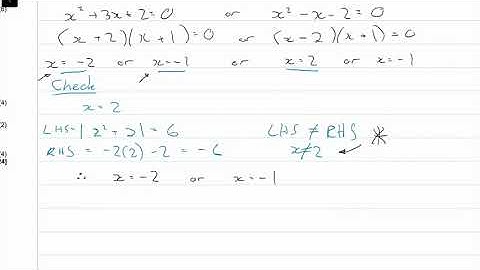 x² + 3x + 2 = 0 or x² - x - 2 = 0
(x + 2)(x + 1) = 0 or (x - 2)(x + 1) = 0
x = -2 or x = -1 or x = 2 or x = -1
Check
x = 2
LHS = |2² + 2| = 6 LHS ≠ RHS
RHS = -2(2) - 2 = -6 x ≠ 2
∴ x = -2 or x = -1